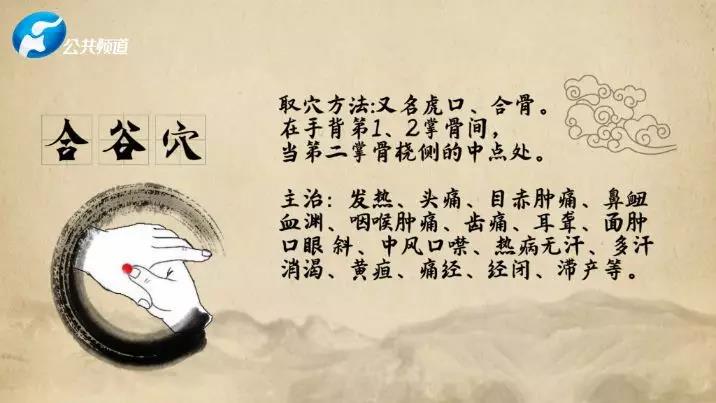 公共频道
合谷穴
取穴方法:又名虎口、合骨。
在手背第1、2掌骨间，
当第二掌骨桡侧的中点处。
主治：发热、头痛、目赤肿痛、鼻衄
血渊、咽喉肿痛、齿痛、耳聋、面肿
口眼 斜、中风口噤、热病无汗、多汗
消渴、黄疸、痛经、经闭、滞产等。